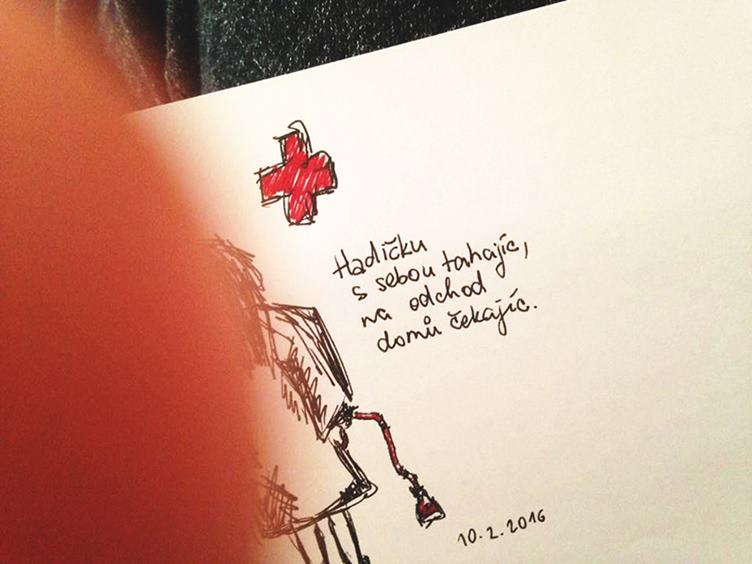 Hadičku
s sebou tahajíc,
na odchod
domů čekajíc.
10.2.2016